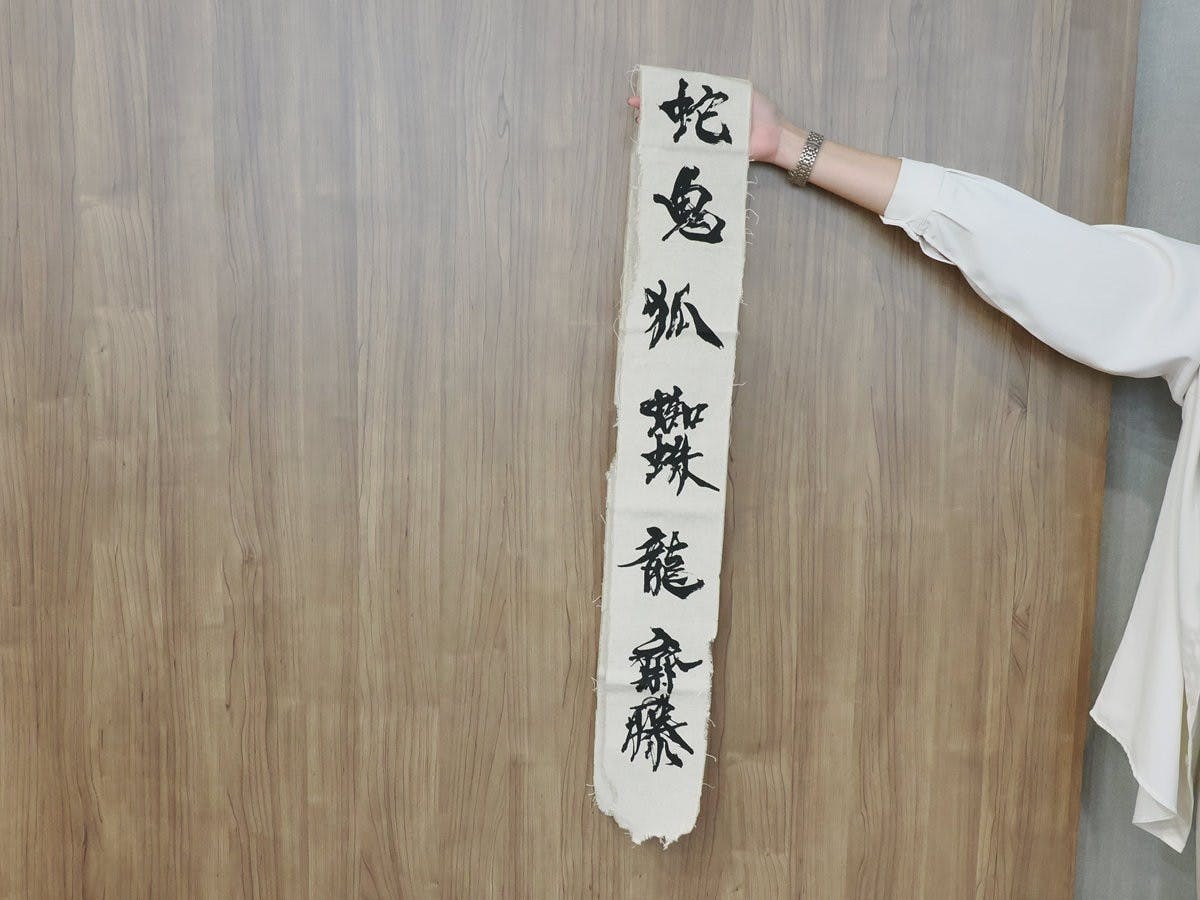 蛇鬼狐蜘蛛龍齋藤